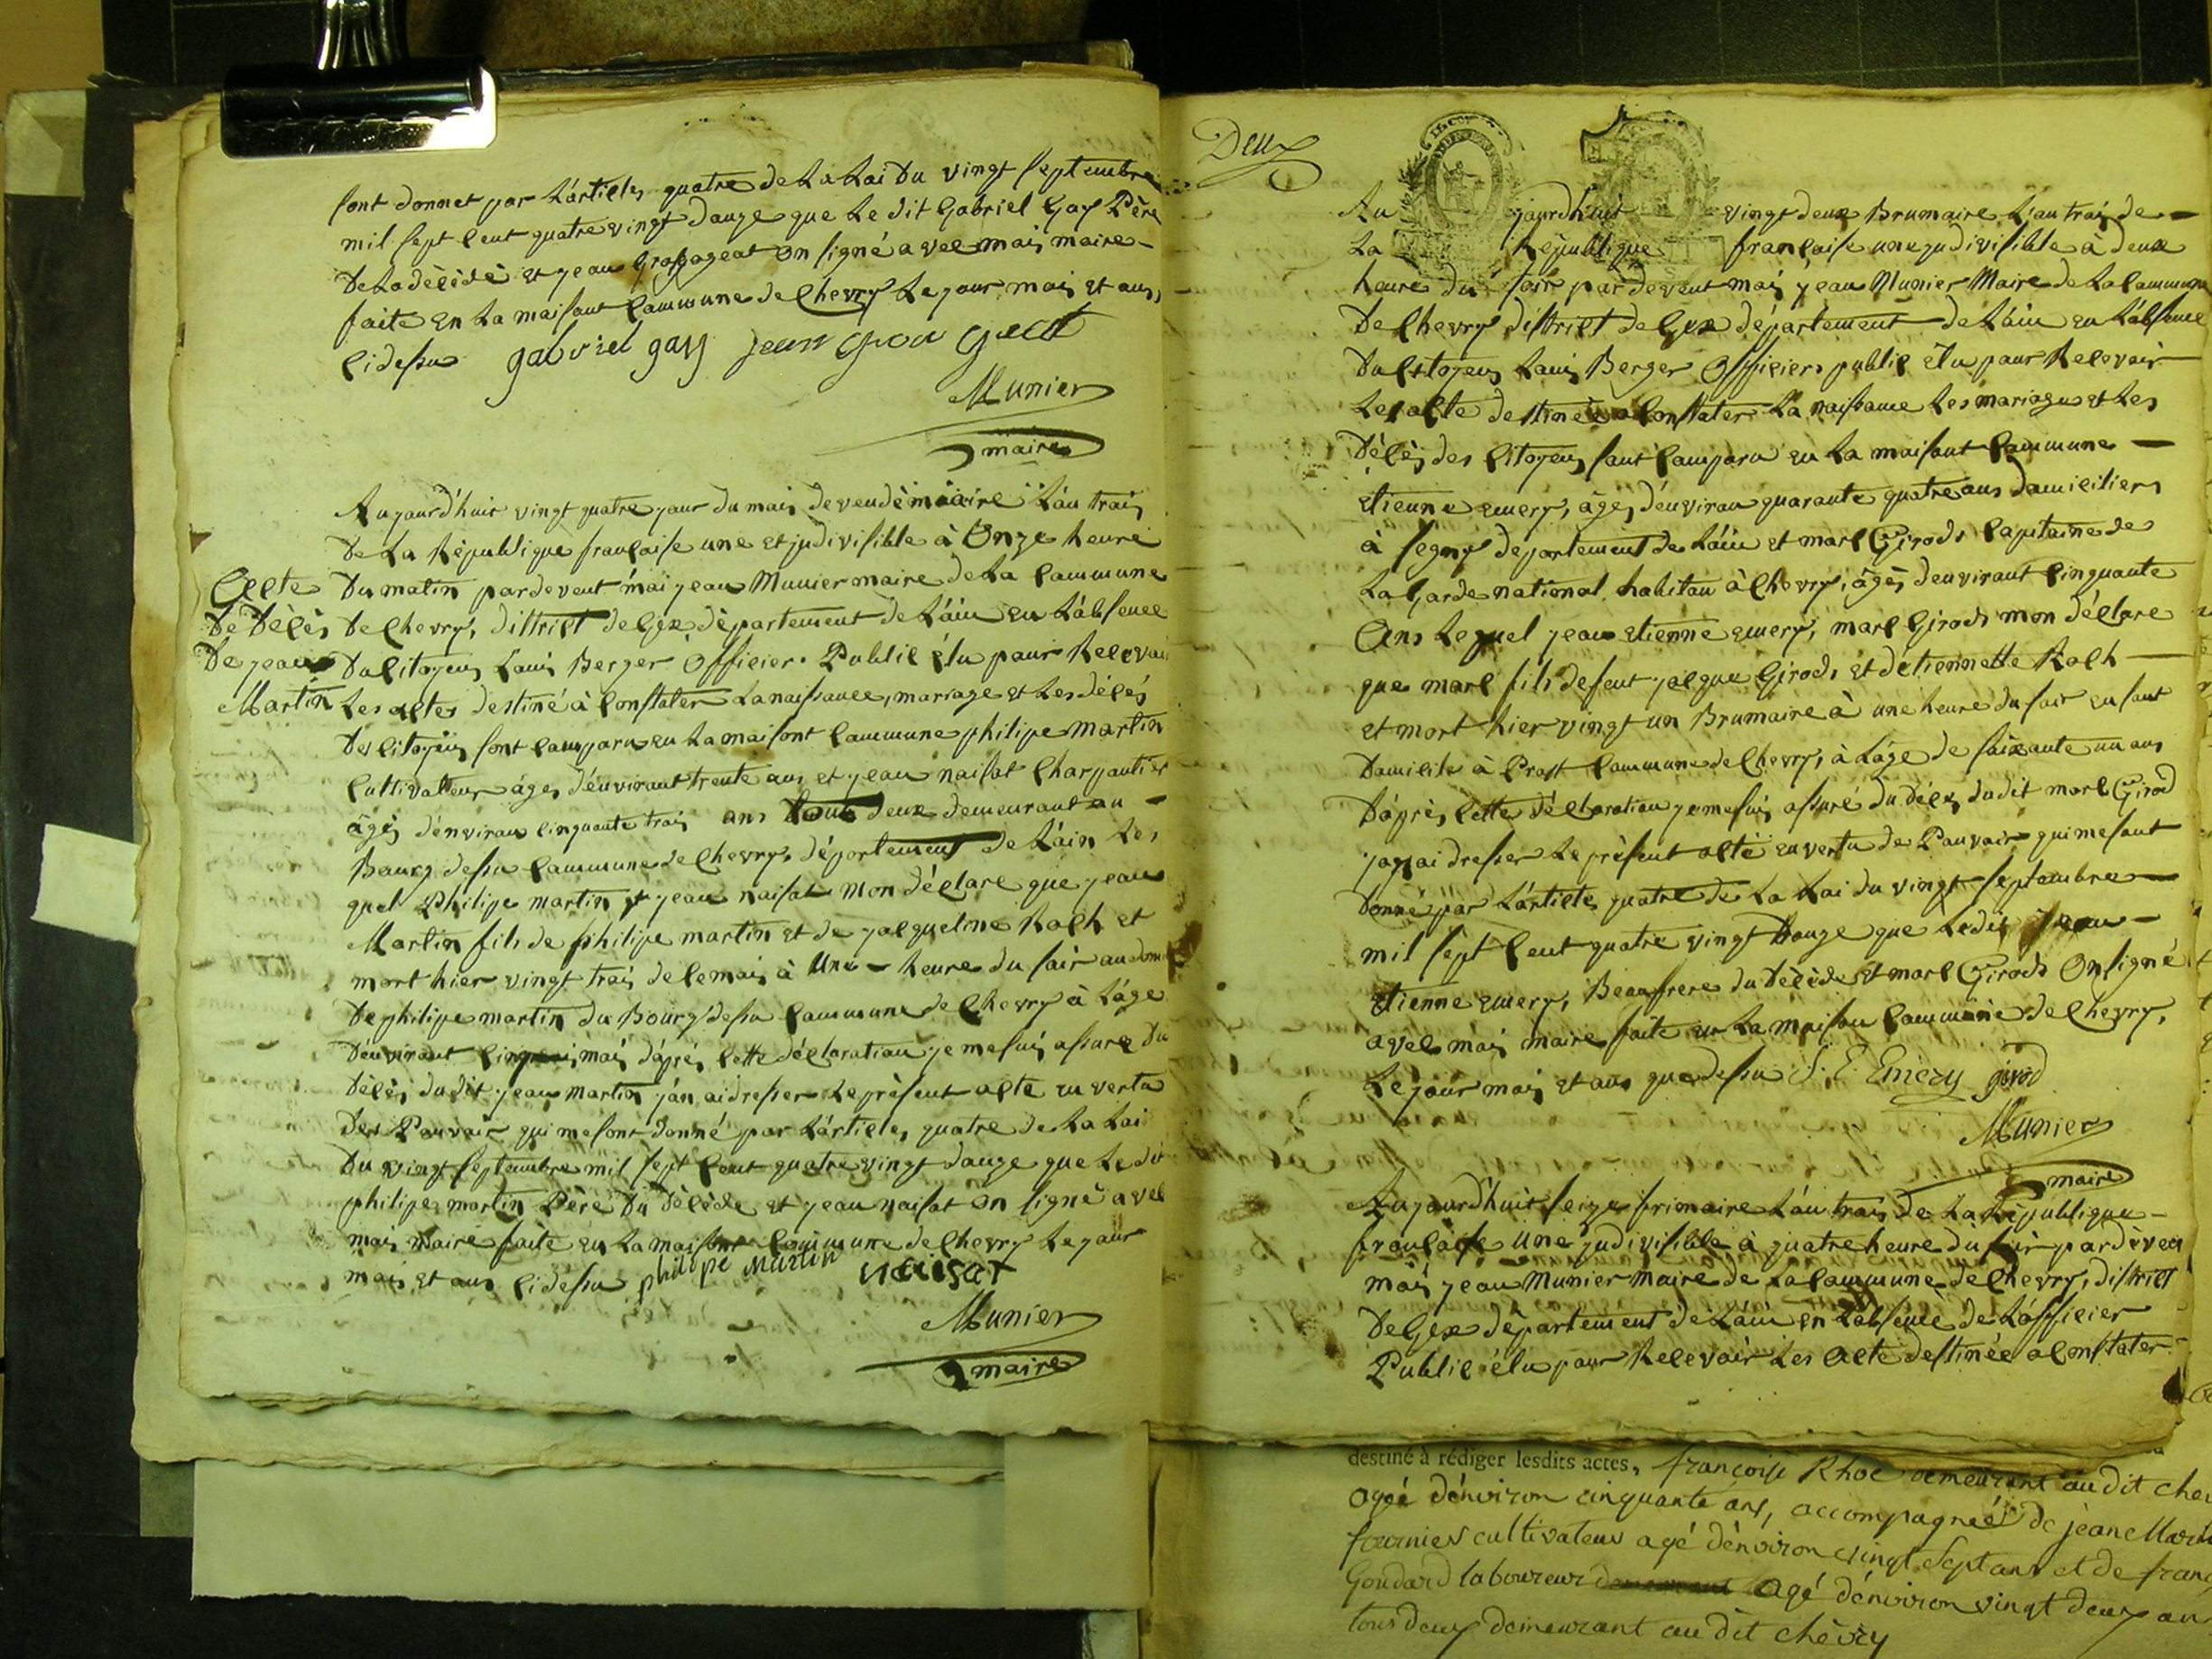 sont donnet par L'article quatre de La Loi Du vingt septembre
mil sept cent quatre vingt douze que Le dit Gabriel Gay Père
De La dècèdè et jean Grossageat on signé avec moi maire -
faite en La maisont commune de Chevry Le jour mois et ans,
cidessu gabriel gay jean
Munier
maire
Aujourd'huit vingt quatre jour du mois de vendèmiaire L'an trois
De La Rèpublique française une et jndivisible à Onze heure
Du matin pardevent moi jean Munier maire de La commune
De Chevry, district de Gex dèpartement de L'ain en L'absence
Du citoyen Louis Berger Officier Public élu pour Recevoir
Les actes destiné à constater La naissance, mariage et Les décès
Des citoyens sont comparu en La maisont commune philipe martin
Cultivateur âgés d'envirant trente ans et jean naisat Charpantier
âgés d'environ cinquante trois ans tous deux demeurant au -
Bourg dessu commune de Chevry, département de L'ain Les
quel Philipe martin et jean naisat mon déclare que jean
Martin fils de philipe martin et de jacqueline Roch et
mort hier vingt trois de ce mois à Une - heure du soir au domi
De philipe martin du Bourg dessu commune de Chevry à L'age
D'envirant cinq mois d'aprés cette déclaration je me suis assuré Du
Décès du dit jean Martin j'an ai dresser Le prèsent acte en vertu
Des Pouvoir qui me sont donné par L'article, quatre de La Loi
Du vingt septembre mil sept cent quatre vingt douze que Le dit
philipe martin Père Du Dècède et jean naisat on signè avec
moi maire faite en La maisont commune de Chevry Le jour
mois et ans cidessu philipe martin naisat
Munier
maire
Acte
De Dècès
De jean
Martin
Deux
Aujourdhuit vingt deux Brumaire L'an trois de -
La Rèpublique française une jndivisible à deux
heure du soir pardevent moi jean Munier Maire de La commune
De Chevry district de Gex département de L'ain en L'absence
Du citoyen Louis Berger Officier public élu pour Recevoir
Les acte destinée a constater La naissance Les mariages et Les
Dècès des citoyens sont comparu en La maisont commune -
Etienne emery, âgés d'environ quarante quatre ans domicilier
à segny departement de L'ain et marc Girods Capitaine de
La Garde national habitan à Chevry, âgés d'envirant cinquante
Ans Lequel jean etienne emery, marc Girods mon déclare
que marc fils de feut jacque Girods et d'etiennette Roch -
et mort hier vingt un Brumaire à une heure du soir en sont
Domicile à Prost commune de Chevry, à L'age de soixante un ans
D'après cette déclaration je me suis assuré du dècès dudit marc Girod
j'an ai dresser Le prèsent acte en vertu de Pouvoir qui me sont
Donné par L'article quatre de La Loi du vingt septembre -
mil sept cent quatre vingt Douze que Ledit jean -
Etienne emery, Beaufrere du dècède et marc Girods On signé
avec moi maire faite en La maison commune de Chevry,
Le jour mois et ans que dessu J. E. Emery girod
Munier
maire
Aujourd'huit seize frimaire L'an trois de La Rèpublique -
française une jndivisible à quatre heure du soir pardevent
moi jean Munier maire de La commune de Chevry, district
De Gex dèpartement de L'ain en L'absence de L'officier
Public élu pour Recevoir Les acte destinée a constater
destiné à rédiger lesdits actes, françoise Rhoc demeurant au dit che
agée d'environ cinquante ans, accompagnée de jean Marie
fournier cultivateur agé d'environ vingt Sept ans et de franc
Goudard laboureur agé d'environ vingt deux an
tous deux demeurant au dit chèvry